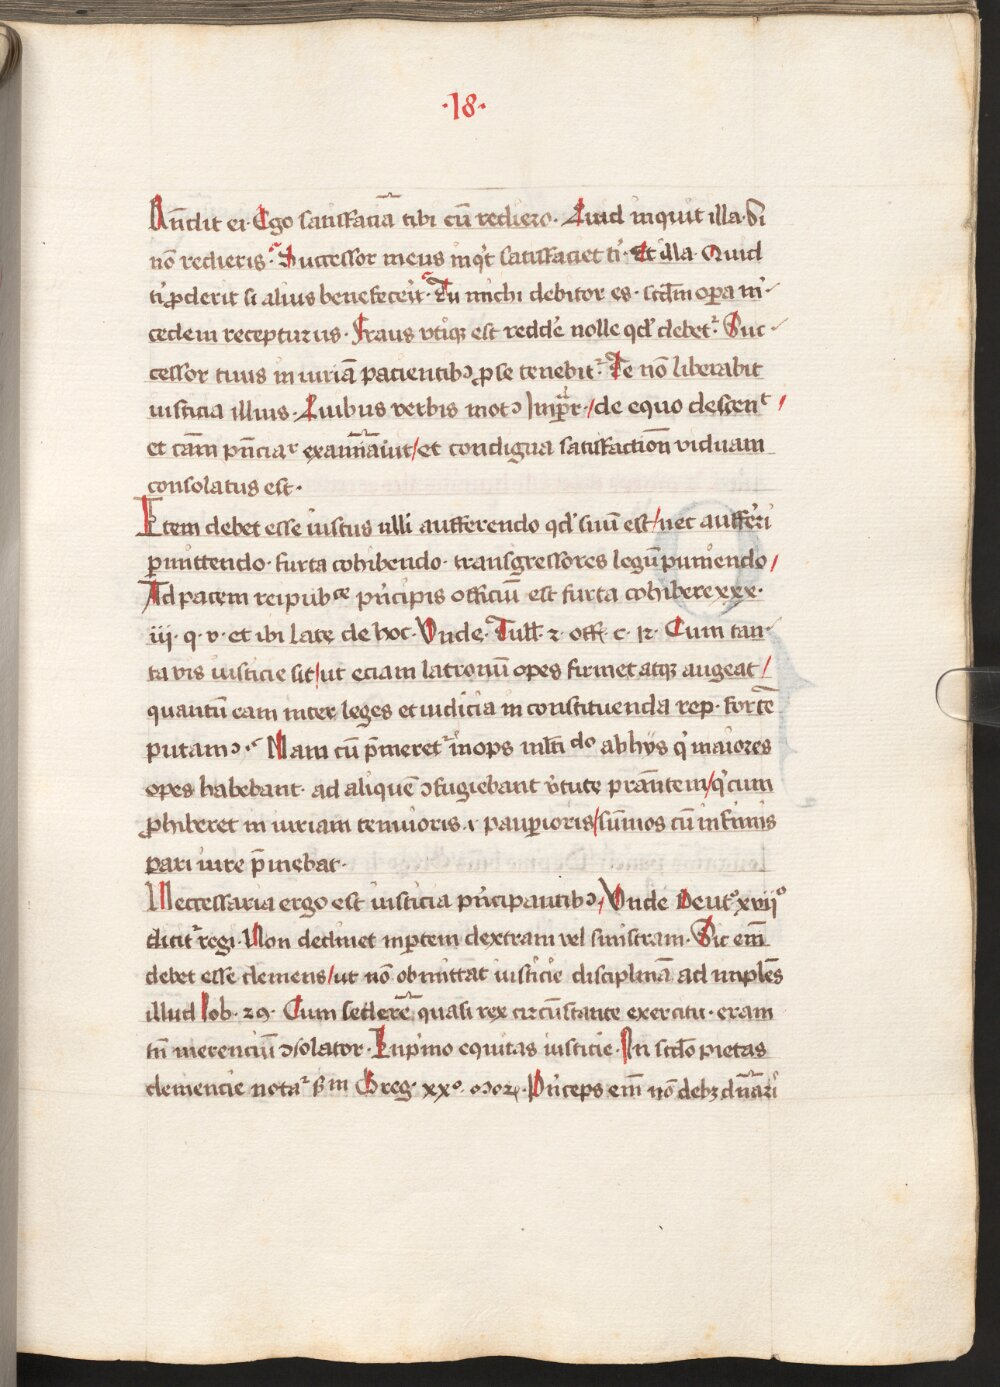 ·18·
Rñdit ei· Ego satisfaciã tibi cũ rediero· Quid inquit illa· Si
nõ redieris· Successor meus inq̇t satisfaciet t̉· Et illa· Quid
t̉ ꝓderit si alius benefecerit· Tu michi debitor es· scd̃m oꝑa m̉-
cedem recepturus· Fraus vtiqꝫ est redde nolle qd̉ debet᷑· Suc-
cessor tuus iniuriã pacientibꝫ ꝓ se tenebit᷑· Te nõ liberabit
iusticia illius· Quibus verbis motꝰ Imꝑr· / de equo descenᵗ /
et cãm pñciaʳ examĩauit / et condigna satisfaction̄ viduam
consolatus est·
Item debet esse iustus nlli aufferendo qd̉ suũ est / nec aufferri
ꝑmittendo· furta cohibendo· transgressores legũ puniendo /
Ad pacem reipubᶜᵉ prı̉cipis officiũ est furta cohibere xxx·
iij· q· v· et ibi late de hoc· Vnde· Tull̃· 2· off· c· 12· Cum tan-
ta vis iusticie sit / ut eciam latronũ opes firmet atqꝫ augeat /
quantũ eam inter leges et iudicia in constituenda rep· fortẽ
putamꝰ· Nam cũ p̃meret᷑ inops ml̃tiᵈᵒ ab hijs q̉ maiores
opes habebant· ad aliquẽ ↄfugiebant v̉tute p̃rãntem / q̉ cum
ꝓhiberet iniuriam tenuioris ⁊ pauꝑioris / sũmos cũ infimis
pari iure p̃tinebat·
Necessaria ergo est iusticia prı̉cipantibꝫ / Vnde Deutᵒ xvijᵒ
dicit᷑ regi· Non declinet in ꝑtem dextram vel sinistram· Sic em̃
debet esse clemens / ut nõ obmittat iusticie disciplinã ad implẽs
illud Iob· 29· Cum sederẽ quasi rex circũstante exercitu· eram
tñ merenciũ ↄsolator· In pı̉mo equitas iusticie· In scd̃o pietas
clemencie notaʳ ẞm Greg· xxᵒ moꝝ· Pı̉nceps em̃ nõ debꝫ dñari